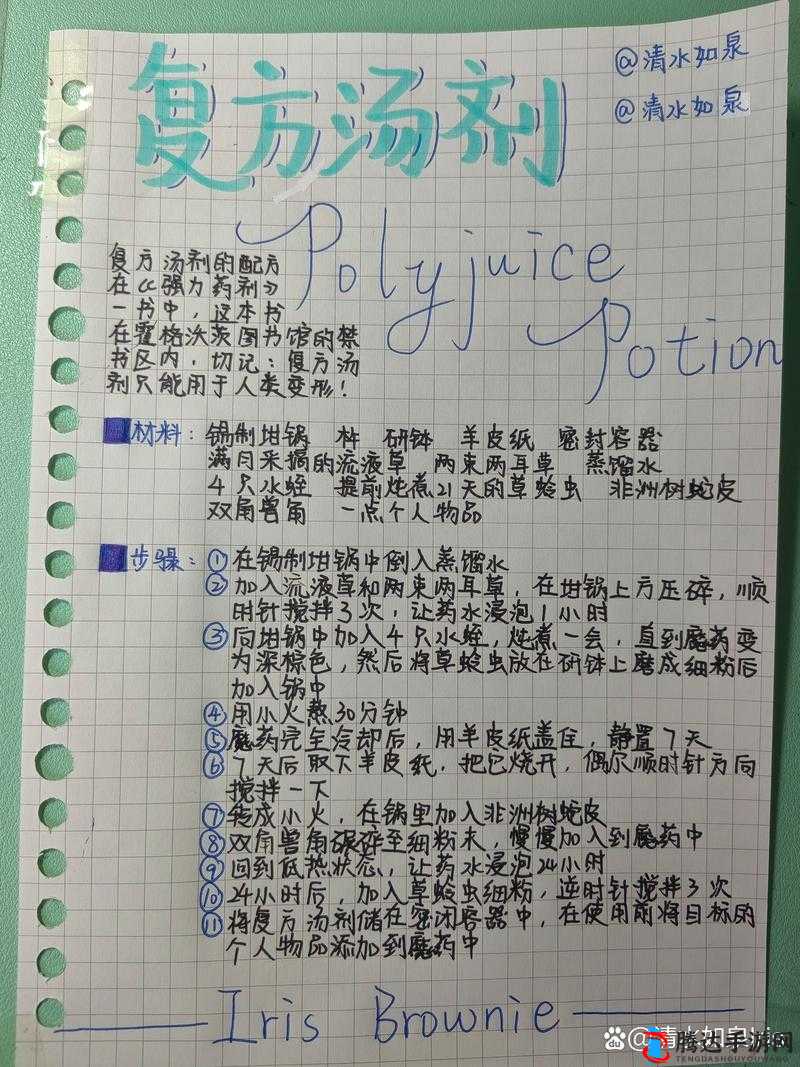 @清水如泉
@清水如泉
复方汤剂
Polyjuice
Potion
复方汤剂的配方
在《强力药剂》
一书中，这本书
在霍格沃茨图书馆的禁
书区内，切记：复方汤
剂只能用于人类变形！
材料：锡制坩锅 杵 研钵 羊皮纸 密封容器
满月采摘的流液草 两束两耳草 蒸馏水
4只水蛭 提前炖煮21天的草蛉虫 非洲树蛇皮
双角兽角 一点个人物品
步骤：①在锡制坩锅中倒入蒸馏水
②加入流液草和两束两耳草，在坩锅上方压碎，顺
时针搅拌3次，让药水浸泡1小时
③向坩锅中加入4只水蛭，炖煮一会，直到魔药变
为深棕色，然后将草蛉虫放在研钵上磨成细粉后
加入锅中
④用小火熬30分钟
⑤魔药完全冷却后，用羊皮纸盖住，静置7天
⑥7天后取下羊皮纸，把它烧开，偶尔顺时针方向
搅拌一下
⑦转成小火，在锅里加入非洲树蛇皮
⑧双角兽角碾碎至细粉末，慢慢加入到魔药中
⑨回到低热状态，让药水浸泡24小时
⑩24小时后，加入草蛉虫细粉，逆时针搅拌3次
⑪将复方汤剂储在密闭容器中，在使用前将目标的
个人物品添加到魔药中
Iris Brownie
Bai du @清水如泉
腾达手游网
TENGDASHOUYOUWANG